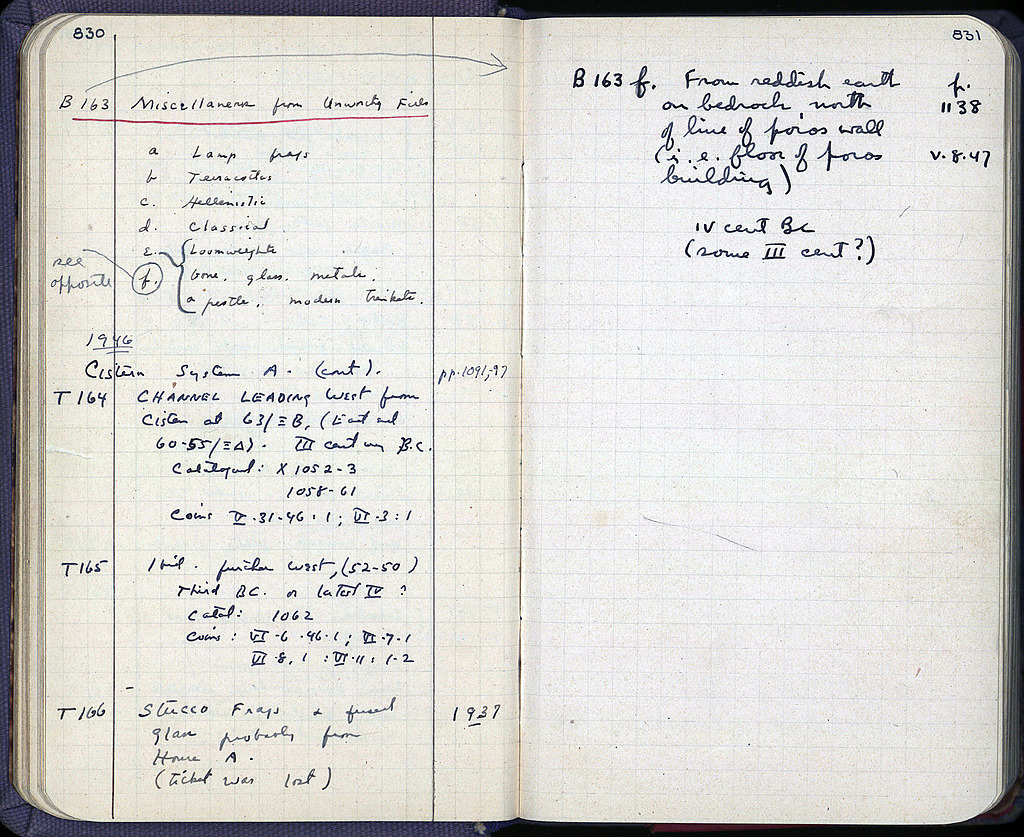 830
B 163 Miscellanea from Unworthy Fills
a Lamp frags
b Terracottas
c. Hellenistic
d. Classical
e. Loomweights
see opposite
f. bone, glass, metals.
a pestle, modern trinkets.
1946
Cistern System A. (cont). pp. 1091,-97
T 164 CHANNEL LEADING West from
Cistern at 63/ΞB, (East end
60-55/ΞΔ). III century B.C.
Catalogued: X 1052-3
1058-61
Coins V.31.46:1; VI.3:1
T165 Ibid. further west, (52-50)
Third BC. or latest IV ?
Catal: 1062
Coins: VI.6.46.1; VI.7.1
VI.8.1 : VI.11: 1-2
T 166 Stucco Frags & fused 1937
glass probably from
House A.
(ticket was lost)
831
B 163 f. From reddish earth p.
on bedrock, north 1138
of line of poros wall
(i.e. floor of poros V.8.47
building)
IV cent BC
(some III cent?)